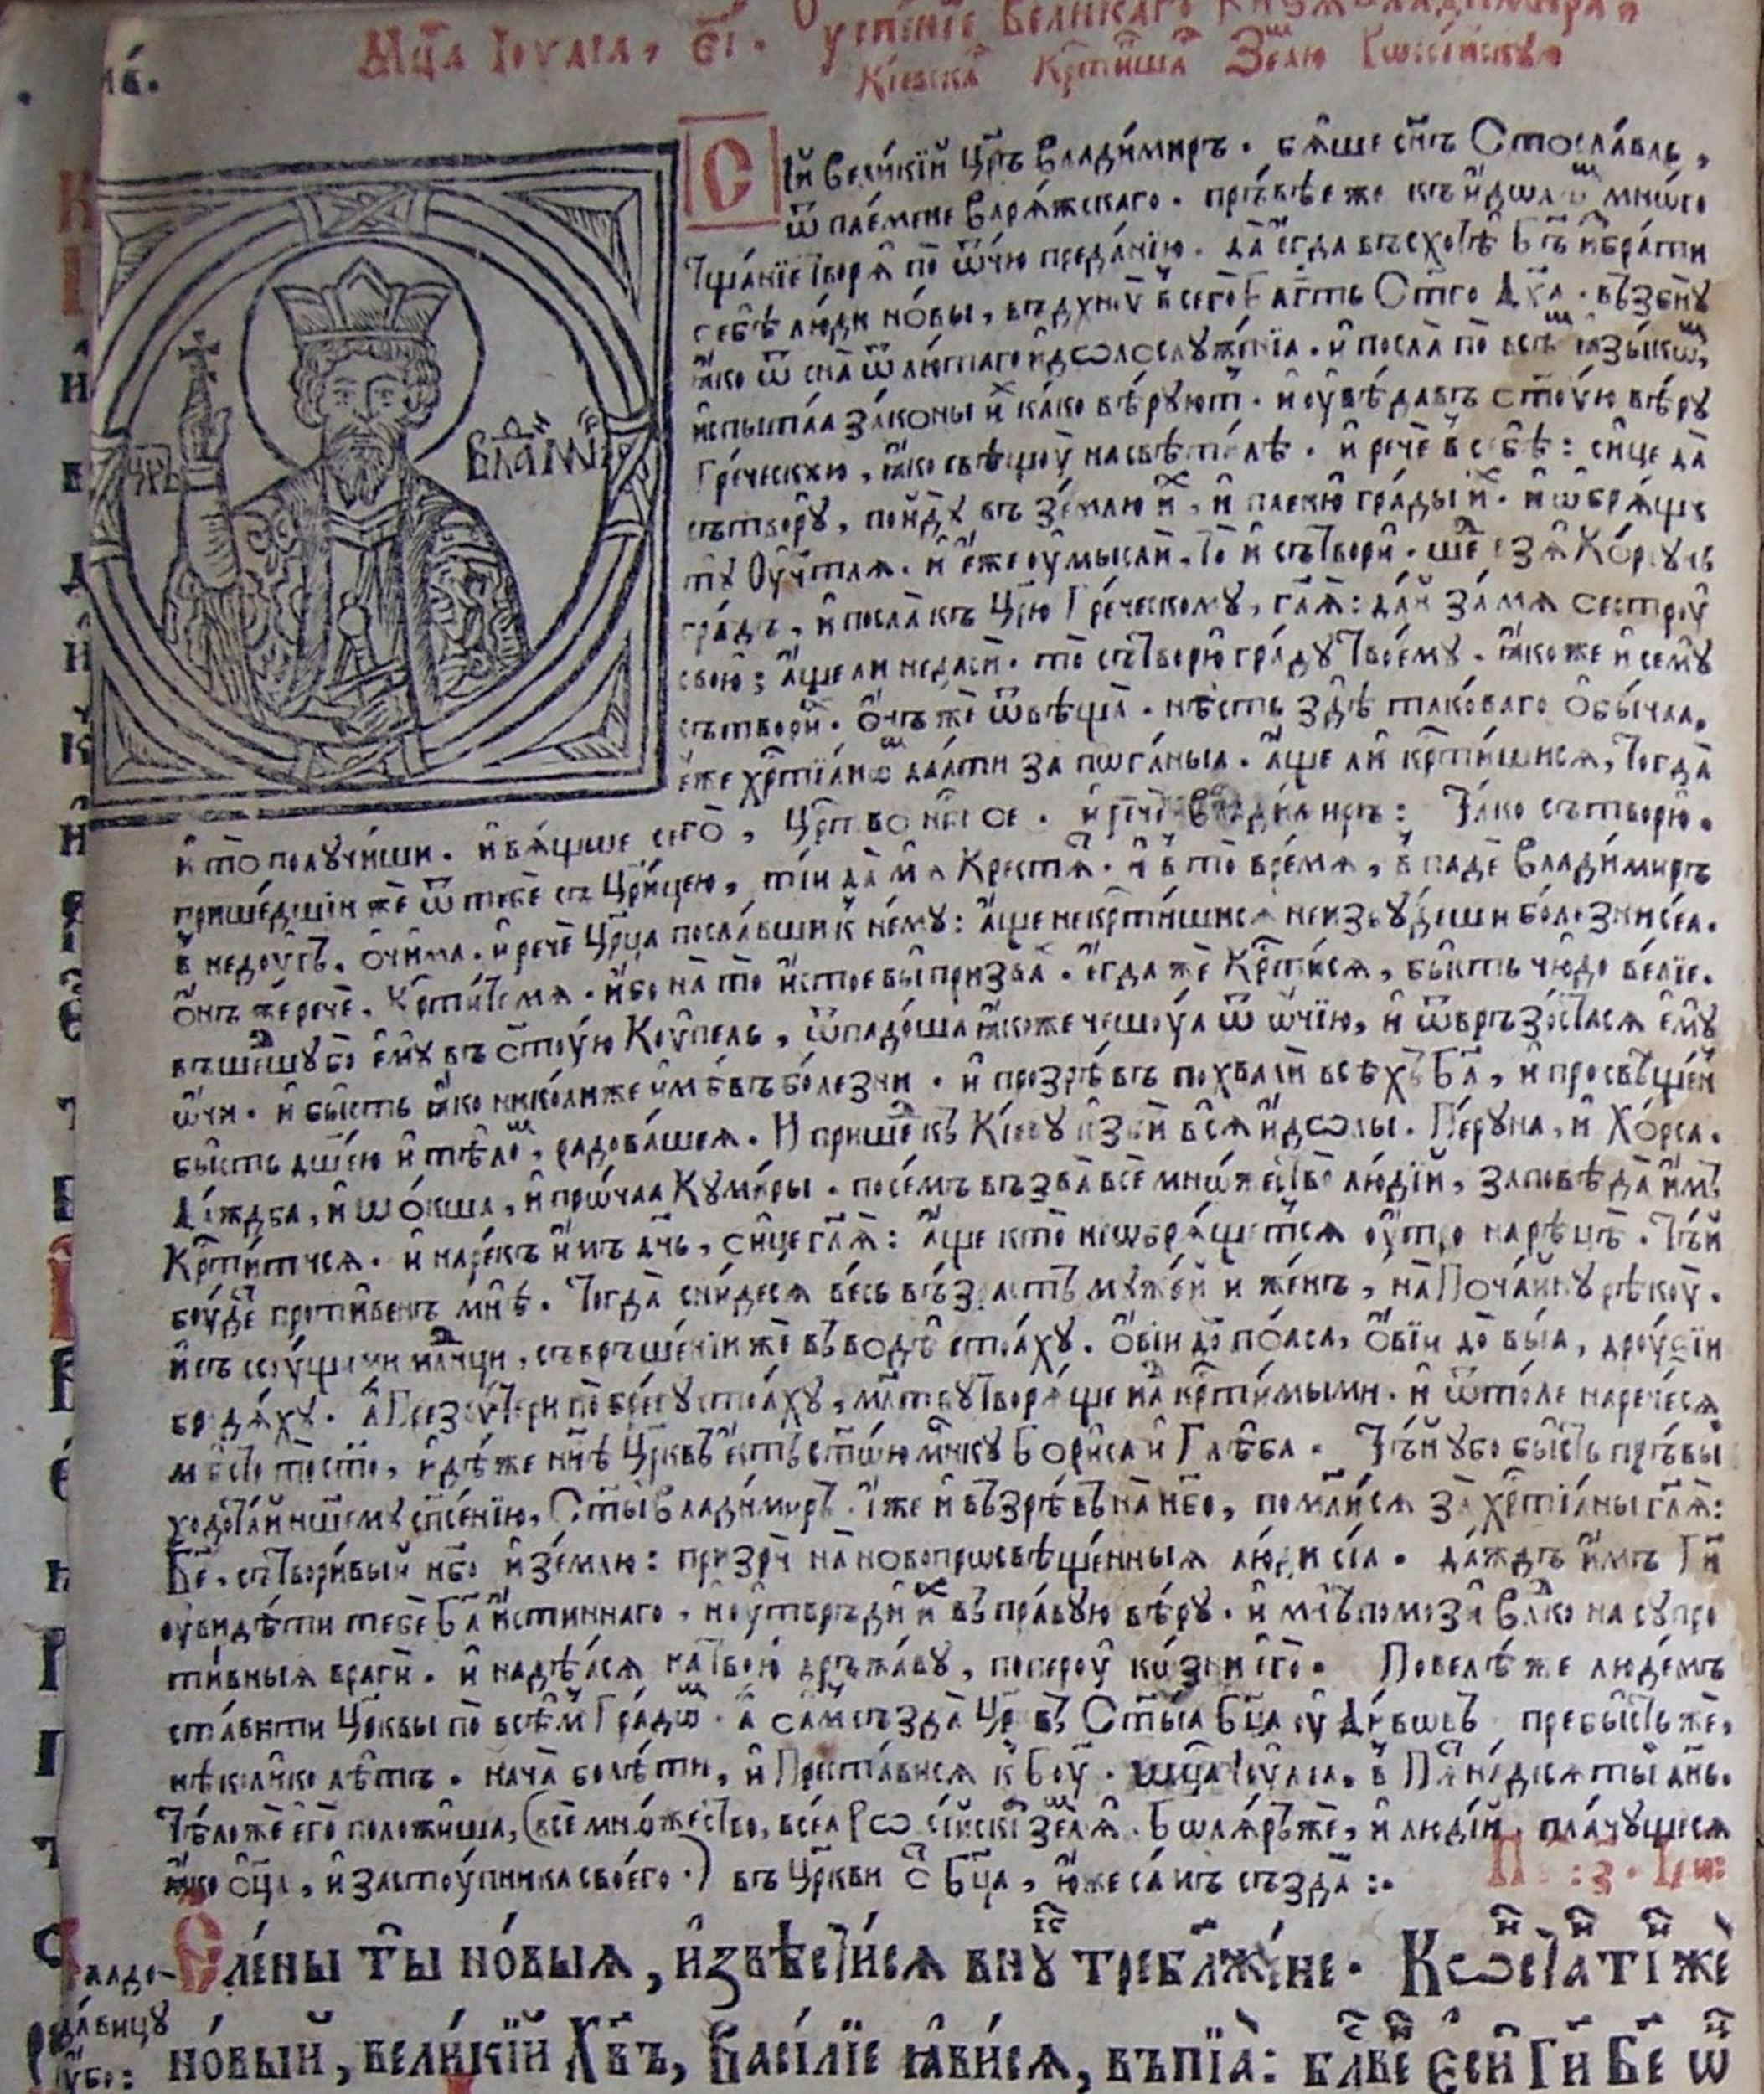 Мц҃а Іоулїа, є҃і. Оуспе́нїе Великаго Кнѧзѧ Влади́мира
Кі́евска Крⷭ҇ти́вша Зе́млю
Сі́й Вели́кїй Цр҃ь Влади́миръ. бѧ́ше сн҃ъ Ст҃осла́вль,
ѿ пле́мене Варѧ́жскаго. пръ́вѣе же къ и҆́дѡлѡ мно́го
тща́нїе творѧ̀ по ѿчю преда́нїю. да̀ є҆гда въсхотѣ̀ Бг҃ъ и҆збра́ти
себѣ̀ лю́ди но́вы, въдхну́ в сего̀ Блгⷣть Ст҃го Дх҃а. въ́збну
ꙗ҆́ко ѿ сна̀ ѿ лю́таго и҆́дѡлослуже́нїа. и҆ посла̀ по всѣ ꙗ҆зы́кѡ,
и҆спыта́а зако́ны и҆ ка́ко вѣ́рують. и҆ оу҆вѣ́давъ ст҃оу́ю вѣ́ру
Гре́ческую, ꙗ҆́ко свѣщоу̀ на свѣти́лѣ. и҆ речѐ в себѣ̀: си́це да̀
сътворꙋ̀, пойдꙋ̀ въ зе́млю и҆х, и҆ плѣню̀ гра́ды и҆х. и҆ ѡ҆брѧ́щꙋ
тꙋ̀ Оу҆чи́тлѧ. и҆ є҆́же оу҆мы́сли, то̀ и҆ сътворѝ. ше зѧ̀ Ко́рꙋнь
гра́дъ, и҆ посла̀ къ Цр҃ю Гре́ческому, гл҃ѧ: да́й за́ мѧ сестроу̀
свою̀; а҆́ще ли не да́си. то̀ сътворю̀ гра́ду твоємꙋ. ꙗ҆́коже и҆ семꙋ̀
сътвори́х. ѻ҆́нъ же ѿвѣща̀. нѣ́сть здѣ̀ тако́ваго ѻ҆бы́чаа,
є҆́же хрⷭ҇тїа́нѡ даа́ти за пога́ныа. а҆́ще ли крⷭ҇ти́шисѧ, тогда̀
и҆ то̀ полꙋчи́ши. и҆ вѧ́щьше сего̀, Црⷭ҇тво нбⷭ҇ное. и҆ речѐ Влади́миръ: Та́ко сътворю̀.
прише́дшїи же ѿ тебѐ съ Цр҃и́цею, ті́и да̀ мѧ Крестѧ́т. и҆ в то̀ вре́мѧ, в падѐ Влади́миръ
в недоу́гъ. ѻ҆чи́ма. и҆ речѐ Цр҃ца посла́вши к немꙋ̀: а҆́ще не крⷭ҇ти́шисѧ не и҆збꙋ́деши болѣзни сеѧ̀.
ѻ҆́нъ же речѐ. Крⷭ҇ти́те мѧ. и҆́бо на то̀ и҆́стое вы̀ призва́х. є҆гда жѐ Крⷭ҇ти́сѧ, бы́сть чю́до ве́лїе.
въшешꙋ бо є҆мꙋ̀ въ ст҃оу́ю Коупѣль, ѿпадо́ша ꙗ҆́коже чешоуа̀ ѿ ѡ҆́чїю, и҆ ѿвръзо́стасѧ є҆мꙋ̀
ѡ҆́чи. и҆ бы́сть ꙗ҆́ко николи́же и҆мѣ́въ болѣ́зни. и҆ прозрѣ́въ похвалѝ всѣ́хъ Бг҃а, и҆ просвѣще́н
бы́сть дш҃ею и҆ тѣ́ло, ра́довашесѧ. И прише къ Кі́евꙋ и҆збѝ всѧ̀ и҆́дѡлы. Пе́рꙋна, и҆ Хо́рса.
Да́ждба, и҆ Мо́кша, и҆ про́чаа Кꙋми́ры. посе́мъ възва̀ всѐ мно́жество люді́й, заповѣ́да и҆́мъ
Крⷭ҇ти́тисѧ. и҆ наре́къ и҆́мъ дн҃ь, си́це гл҃ѧ: а҆́ще кто̀ не ѡ҆брѧ́щетсѧ оу҆́тро на рѣцѣ̀. тъ́й
боу́де проти́венъ мнѣ̀. Тогда̀ сни́десѧ ве́сь въ́зрастъ мꙋже́й и҆ же́нъ, на̀ Поча́йнꙋ рѣкоу̀.
и҆ съ соу́щими младе́нци, съвръше́нїи же въ водѣ̀ стоа́хꙋ. ѻ҆́вїи до по́аса, ѻ҆́вїи до вы́а, дроу́зїи
бродѧ́хꙋ. а҆ Презви́тери по бре́гꙋ стоа́хꙋ, мл҃твꙋ творѧ́ще на крⷭ҇ти́мыми. и҆ ѿто́ле нарече́сѧ
мѣ́сто то̀ ст҃о, и҆дѣ́же нн҃ѣ Цр҃квь є҆́сть ст҃ою мч҃нкꙋ Бори́са и҆ Глѣ́ба. Тъ́й ꙋбо бы́сть пръ́вый
ходота́й на́шемꙋ сп҃се́нїю, Ст҃ы́й Влади́миръ. и҆́же и҆ възрѣ́въ на нб҃о, помли́сѧ за хрⷭ҇тїа́ны гл҃ѧ:
Бж҃е, сътвори́вый нб҃о и҆ зе́млю: при́зри на новопросвѣще́нныѧ лю́ди сі́а. да́ждь и҆́мъ Гⷭ҇и
оу҆ви́дѣти тебѐ Бг҃а и҆́стиннаго, и҆ оу҆твръдѝ и҆х въ пра́вꙋю вѣ́рꙋ. и҆ мнѣ̀ помозѝ Влⷣко на сꙋпро
ти́вныѧ врагѝ. и҆ надѣ́ѧсѧ на твою̀ дръжа́вꙋ, попероу̀ ко́зни є҆го̀. Повелѣ́ же лю́демъ
ста́вити Цр҃квы по всѣ́м Гра́дѡ. а҆ са́м създа̀ Цр҃квь Ст҃ы́а Бц҃а оу҆ Дѣ́вшевъ пребы́сть же,
нѣ́колико лѣ́тъ. нача̀ болѣ́ти, и҆ Преста́висѧ к Бг҃оу. мц҃а Іоу́лїа. в Пѧ́тнадесѧтый дн҃ь.
Тѣ́ло же є҆го̀ положи́ша, (всѐ мно́жество, всеа̀ Рѡсі́йскїѧ землѧ̀. Болѧ́ръ же, и҆ люді́й. пла́чꙋщесѧ
ꙗ҆́ко ѻ҆ц҃а, и҆ застоу́пника своего̀.) въ Цр҃кви С Бц҃а, ю҆́же са́мъ създа̀ :.
Єле́ны ты̀ но́выѧ, и҆звѣсти́сѧ внꙋ́к требл҃же́не. Кѡстаті же
но́вый, вели́кїй Хв҃ъ, Васі́лїе ꙗ҆ви́сѧ, въпїа̀: блⷭ҇ве́н єсѝ Гⷭ҇и Бж҃е ѿ